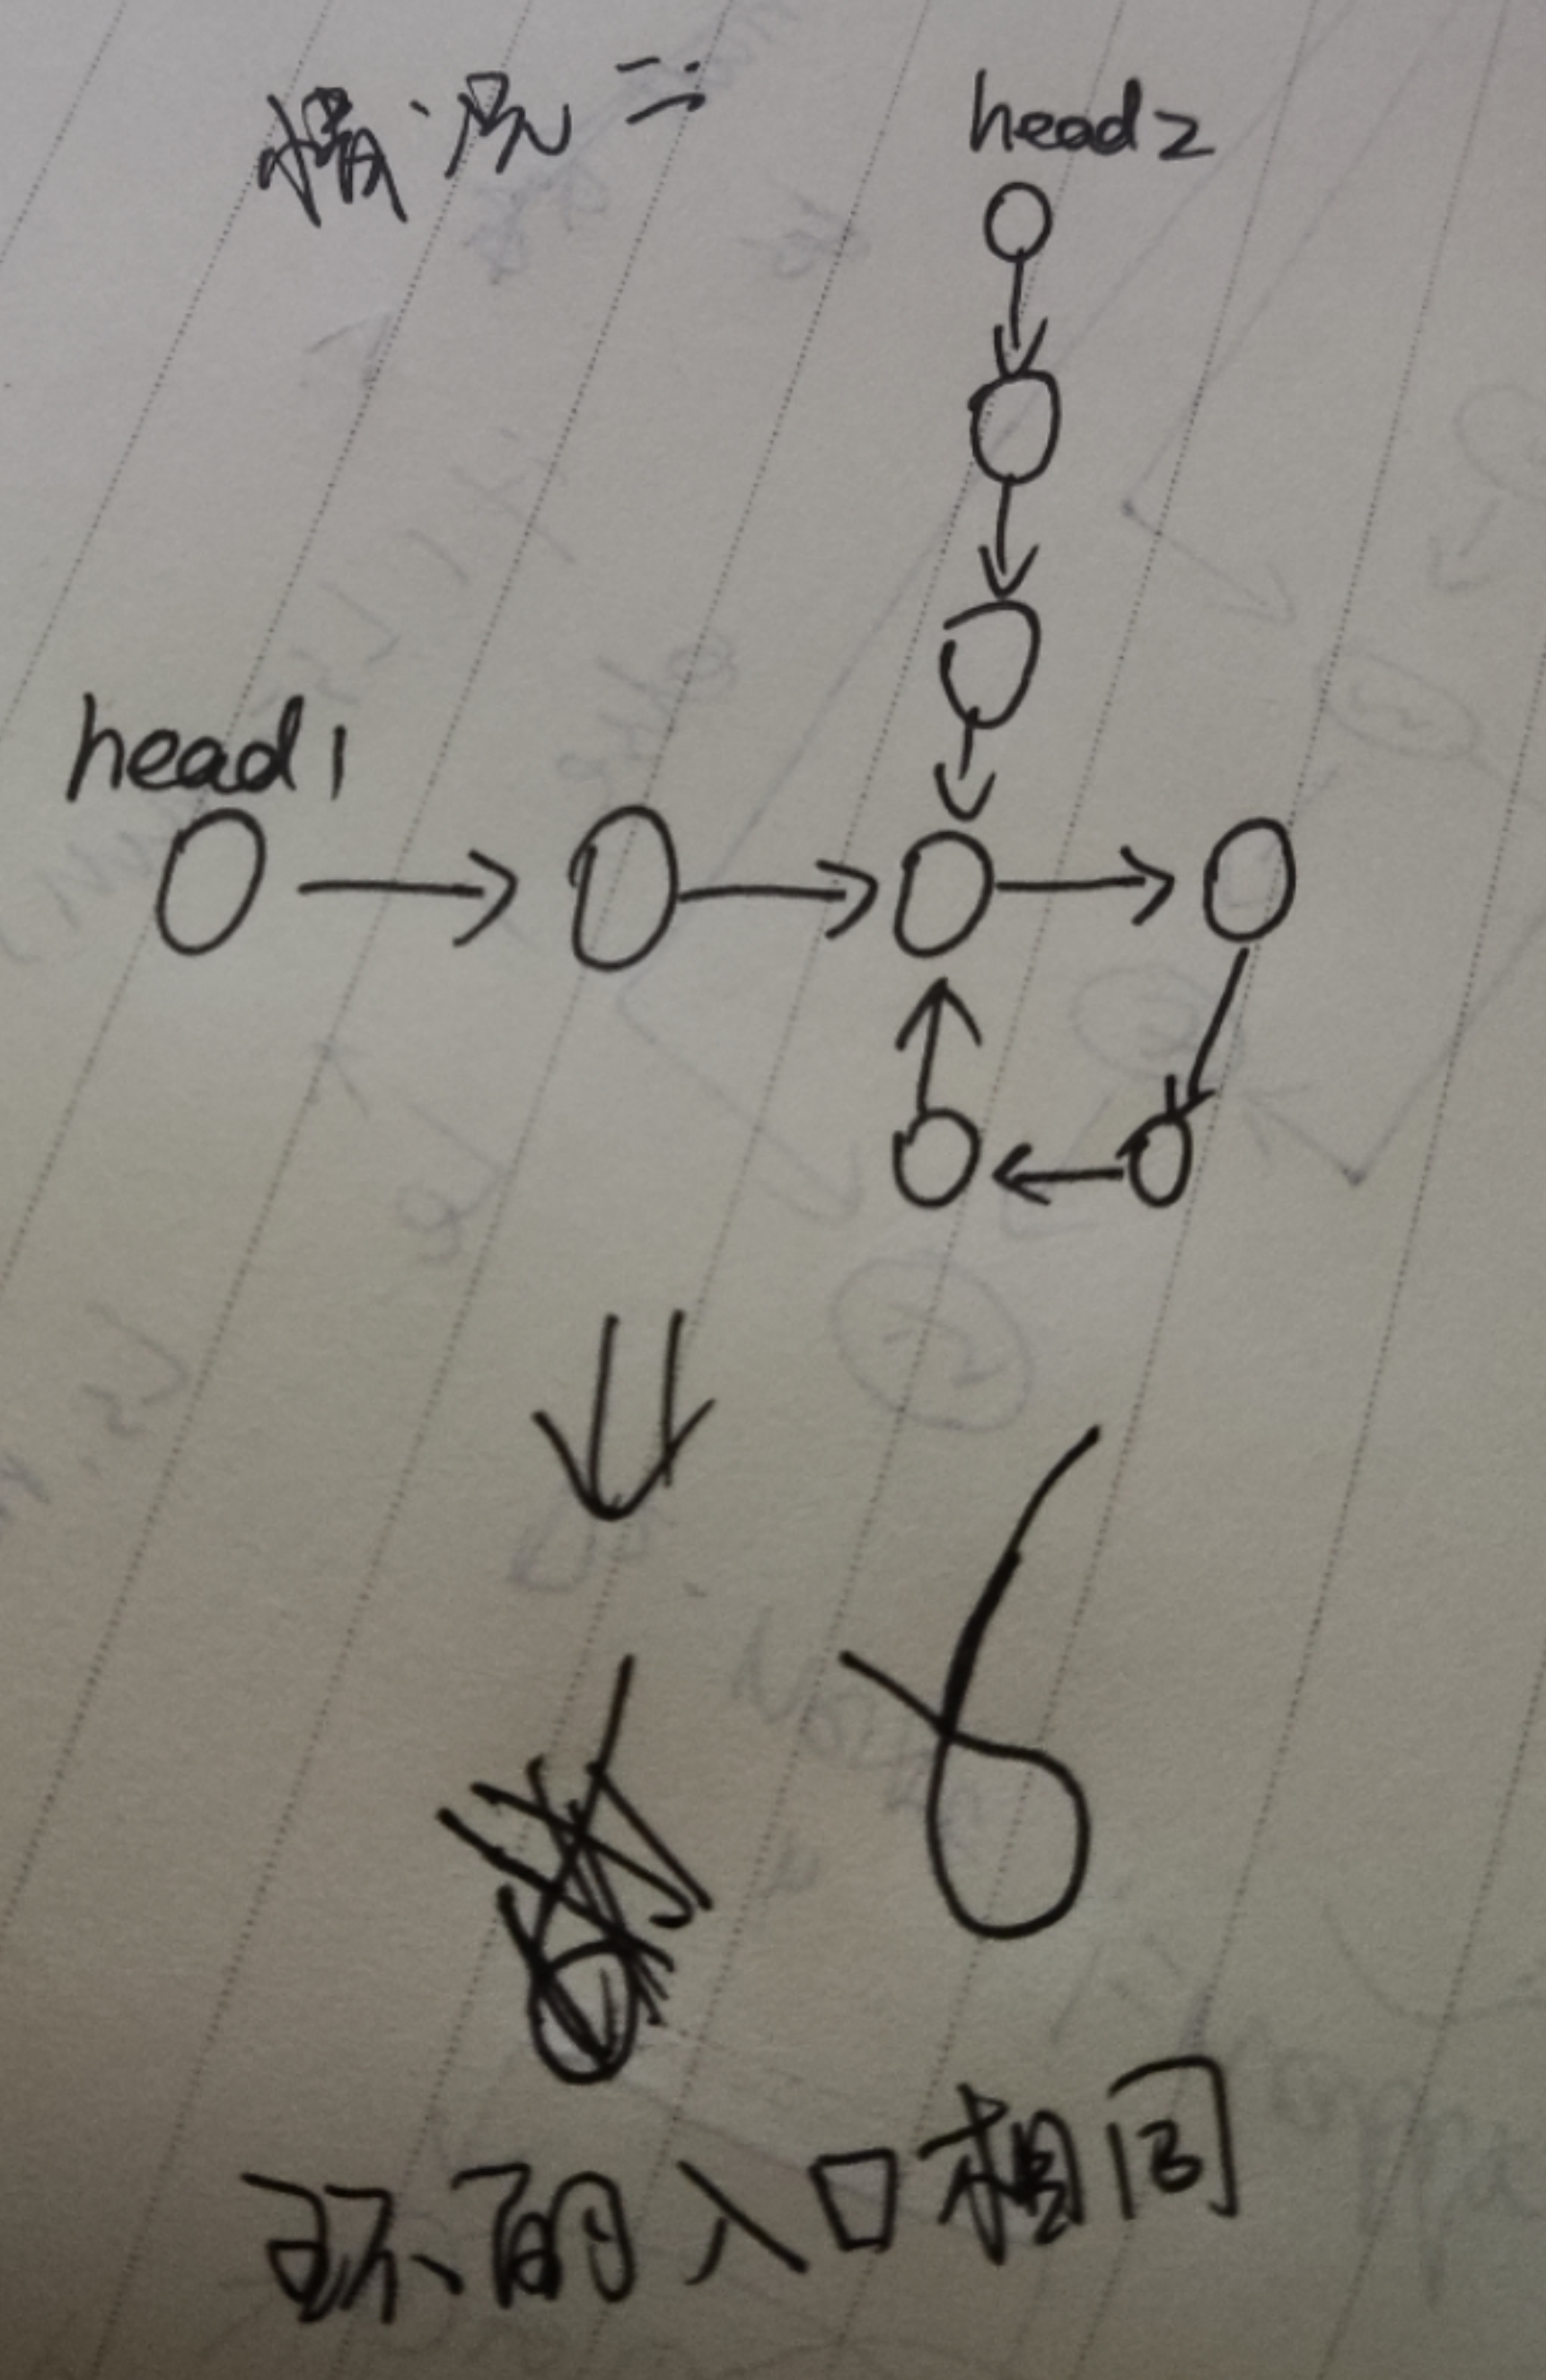 情况二:
head2
head1
环的入口相同